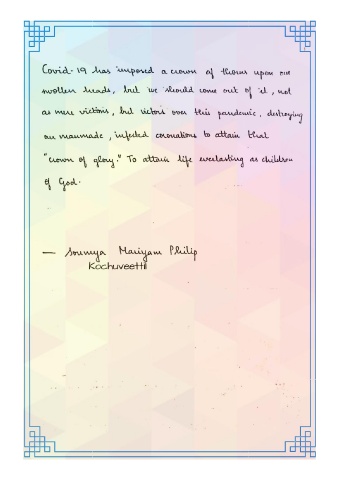 Covid-19 has imposed a crown of thorns upon our
swollen heads, but we should come out of it, not
as mere victims, but victors over this pandemic, destroying
our manmade, infected coronations to attain that
"crown of glory." To attain life everlasting as children
of God.
— Soumya Mariyam Philip
Kochuveettil